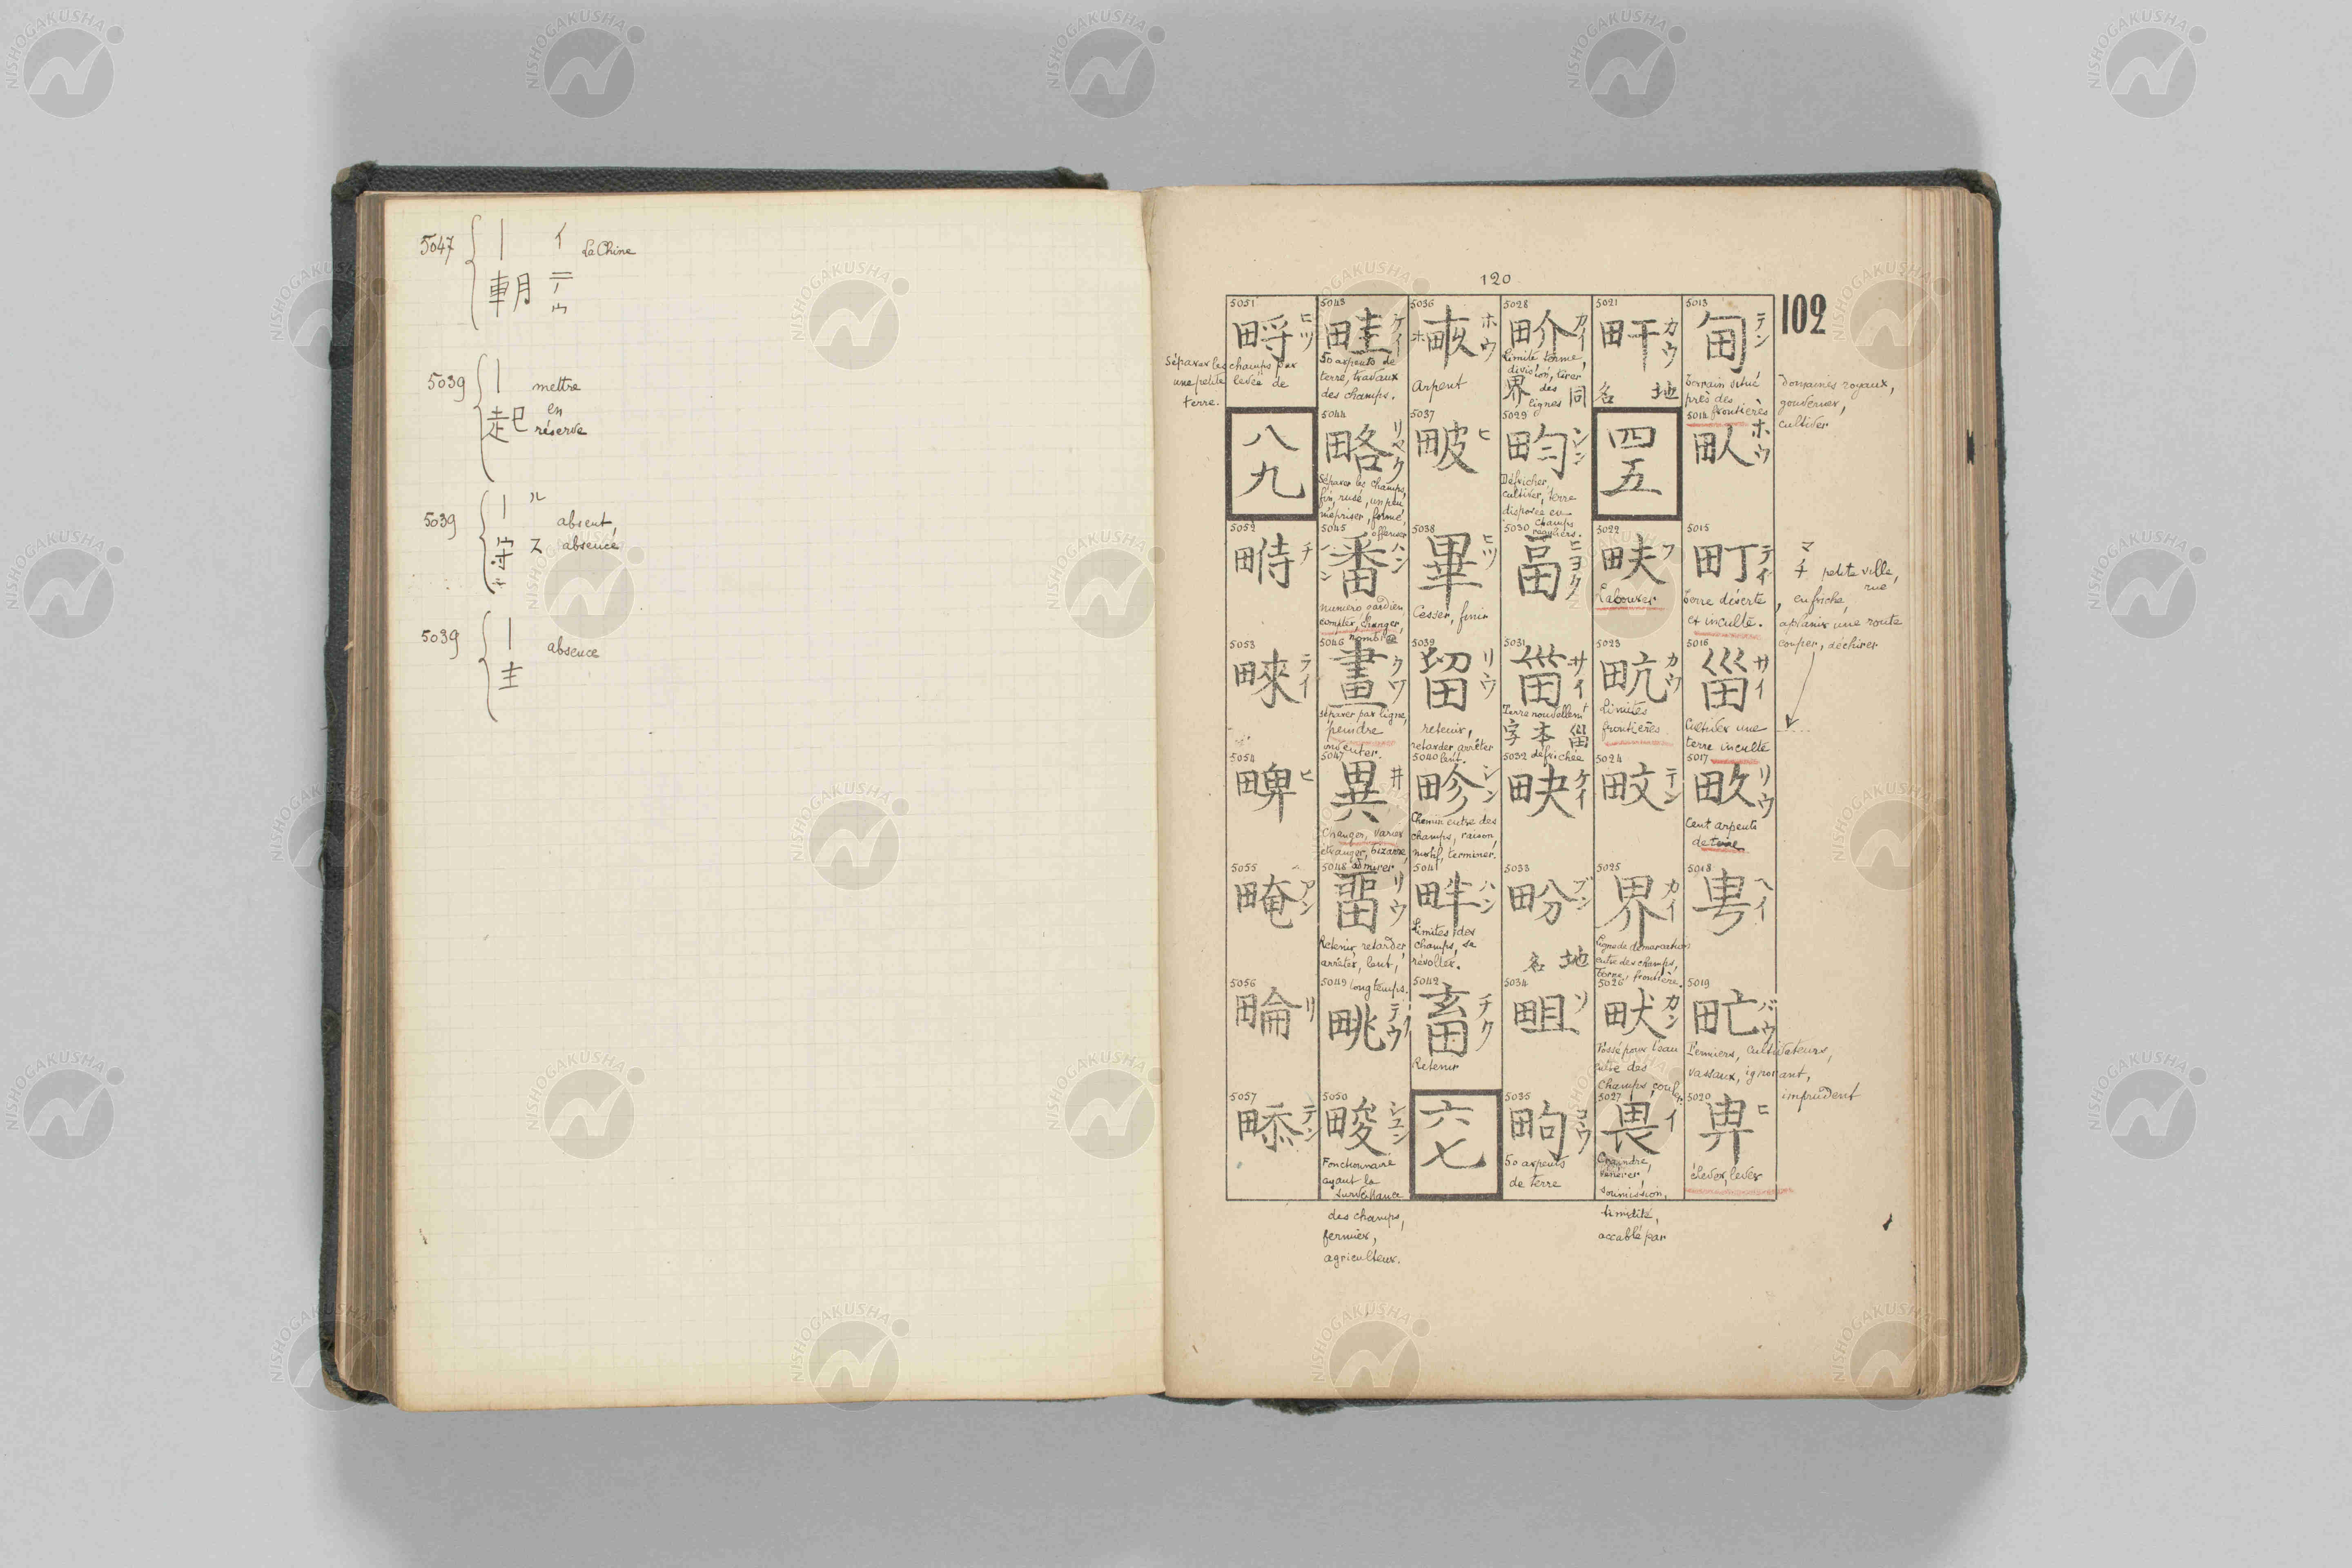 5047 | イ La Chine
朝 テウ
5039 | mettre
起 en
réserve
5039 | ル absent,
守 ス absence
5039 | absence
主
120
102
5013
甸 テン
terrain situé
près des
frontières
domaines royaux,
gouverner,
cultiver
5014
ホウ
5015
町 テイ
terre déserte
et inculte.
マチ petite ville,
rue
en friche,
aplanir une route
couper, déchirer
5016
甾 サイ
Cultiver une
terre inculte
5017
リウ
Cent arpents
de terre
5018
甹 ヘイ
5019
甿 バウ
Fermiers, cultivateurs,
vassaux, ignorant,
imprudent
5020
畀 ヒ
élever, lever
5021
カウ
地名
四五
5022
畉 フ
Labourer
5023
畂 カウ
Limites
frontières
5024
テン
5025
界 カイ
Ligne de démarcation
entre des champs,
borne, frontière.
5026
畎 カン
Fossé pour l'eau
entre des
champs, couler
5027
畏 イ
Craindre,
vénérer,
soumission,
timidité,
accablé par
5028
畍 カイ
Limite terme,
division, tirer
des
lignes
同界
5029
畇 シン
Défricher,
cultiver, terre
disposée en
champs
réguliers.
5030
畐 ヒヨク
5031
甾 サイ
Terre nouvellemt
甾本字
défrichée
5032
ケイ
5033
畚 ブン
地名
5034
ソ
5035
畃 コウ
50 arpents
de terre
5036
畞 ホウ
ホ
Arpent
5037
ヒ
5038
畢 ヒツ
Cesser, finir
5039
留 リウ
retenir,
retarder arrêter
lent.
5040
畛 シン
Chemin entre des
champs, raison,
motif, terminer.
5041
畔 ハン
Limites des
champs, se
révolter.
5042
畜 チク
Retenir
六七
5043
畦 ケイ
50 arpents de
terre, travaux
des champs.
5044
略 リヤク
Séparer les champs,
fin, rusé, un peu
mépriser, formé,
offenser
5045
番 ハン
numero gardien
compter, changer,
nombre
5046
畫 クワ
séparer par ligne,
peindre
inventer.
5047
異 井
Changer, varier
étranger, bizarre,
admirer
5048
畱 リウ
Retenir, retarder,
arrêter, lent,
longtemps.
5049
畩 テウ
5050
畯 シユン
Fonctionnaire
ayant la
surveillance
des champs,
fermier,
agriculteur.
5051
畤 ヒツ
Séparer les champs par
une petite levée de
terre.
八九
5052
畤 チ
5053
テイ
5054
ヒ
5055
アン
5056
リ
5057
テン